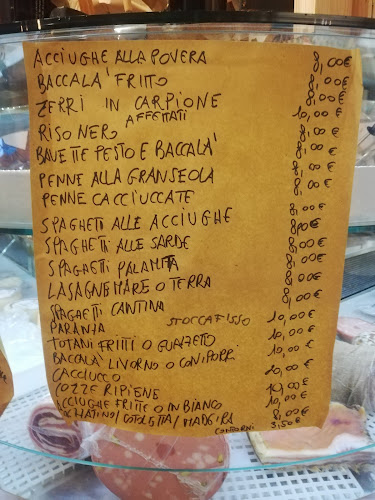 ACCIUGHE ALLA POVERA 8,00€
BACCALA' FRITTO 8,00€
ZERRI IN CARPIONE 8,00€
AFFETTATI 10,00€
RISO NERO 8,00€
BAVETTE PESTO E BACCALA' 8,00€
PENNE ALLA GRANSEOLA 8,00€
PENNE CACCIUCCATE 8,00€
SPAGHETI ALLE ACCIUGHE 8,00€
SPAGHETTI ALLE SARDE 8,00€
SPAGHETTI PALAMITA 8,00€
LASAGNE MARE O TERRA 8,00€
SPAGHETTI CANTINA 8,00€
PARANZA STOCCAFISSO 10,00€
TOTANI FRITTI O GUAZZETO 10,00€
BACCALA' LIVORNO O CON I PORRI 10,00€
CACCIUCCO 20,00€
COZZE RIPIENE 10,00€
ACCIUGHE FRITTE O IN BIANCO 10,00€
/COTOLETTA/ 8,00€
CONTORNI 3,50€